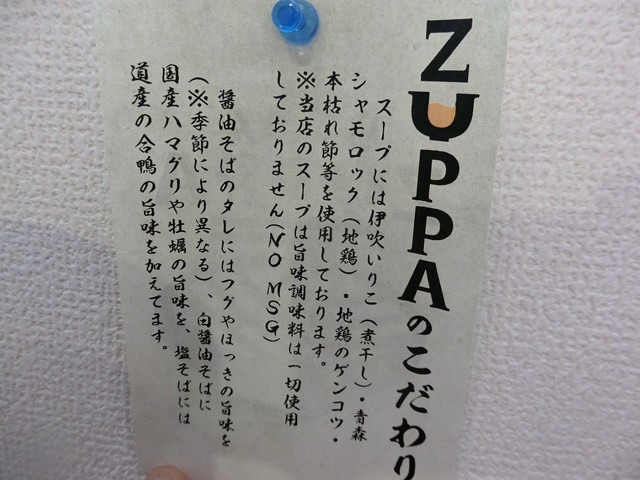 ZUPPAのこだわり
スープには伊吹いりこ（煮干し）・青森
シャモロック（地鶏）・地鶏のゲンコツ・
本枯れ節等を使用しております。
※当店のスープは旨味調味料は一切使用
しておりません(NO MSG)
醤油そばのタレにはフグやほっきの旨味を
（※季節により異なる）、白醤油そばに
国産ハマグリや牡蠣の旨味を、塩そばには
道産の合鴨の旨味を加えてます。